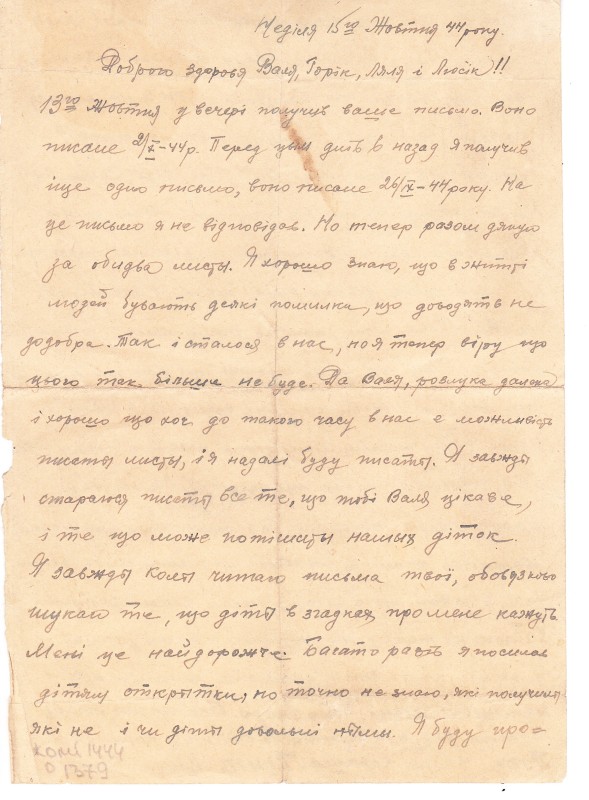 Неділя 15го Жовтня 44 року.
Доброго здоровя Валя, Горік, Ляля і Люсік!!
13го Жовтня у вечері получив ваше письмо. Воно
писане 2/X-44р. Перед цим днів 6 назад я получив
іще одно письмо, воно писане 26/IX-44 року. На
це письмо я не відповідав. Но тепер разом дякую
за обидва листы. Я хорошо знаю, що в житті
людей бувають деякі помилки, що доводять не
додобра. Так і сталося в нас, но я тепер вірю що
цього так більше не буде. Да Валя, розлука далека
і хорошо що хоч до такого часу в нас є можливість
писаты листы, і я надалі буду писаты. Я завжды
стараюся писаты все те, що тобі Валя цікаве,
і те що може потішиты нашых діток.
Я завжды колы читаю письма твої, обовязково
шукаю те, що діты в згадках про мене кажуть.
Мені це найдорожче. Багато разів я посилав
дітям открытки, но точно не знаю, які получили
які не і чи діты довольні нымы. Я буду про=
КОМБ 1444
О 1379